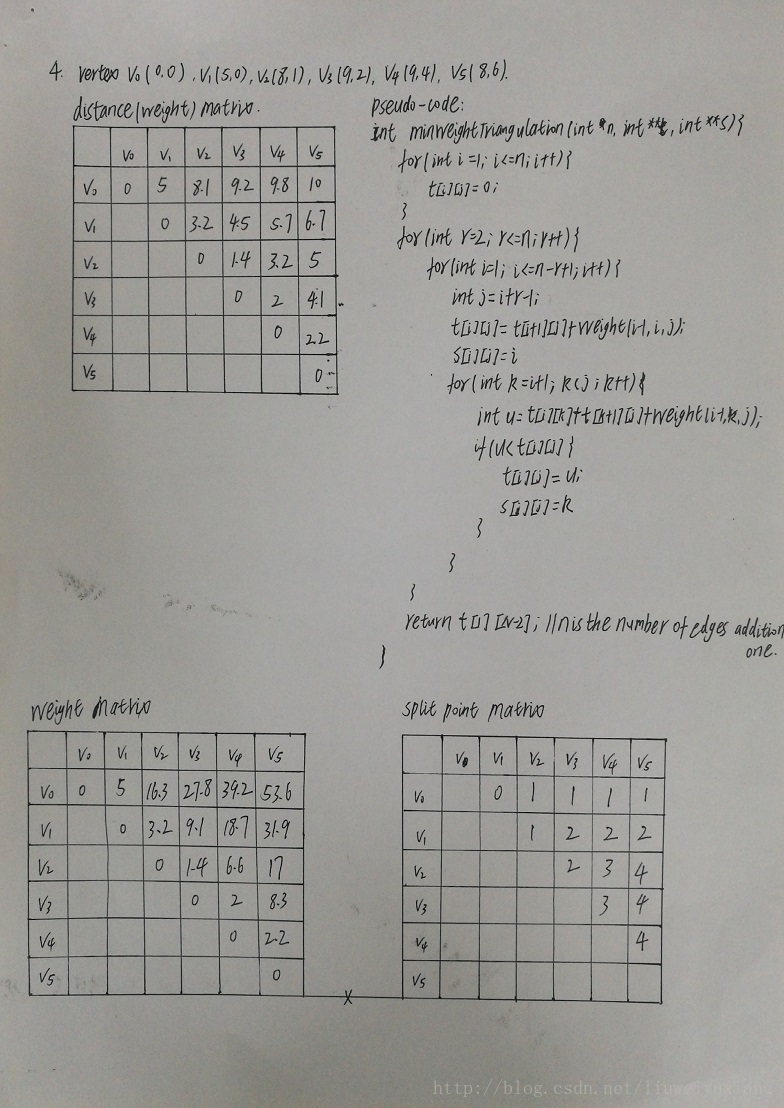 4. vertex V0(0,0), V1(5,0), V2(8,1), V3(9,2), V4(9,4), V5(8,6).
distance(weight) matrix.
V0 V1 V2 V3 V4 V5
V0 0 5 8.1 9.2 9.8 10
V1 0 3.2 4.5 5.7 6.7
V2 0 1.4 3.2 5
V3 0 2 4.1
V4 0 2.2
V5 0
pseudo-code:
int minWeightTriangulation(int *n, int **t, int **s){
for(int i=1; i<=n; i++){
t[i][i]=0;
}
for(int r=2; r<=n; r++){
for(int i=1; i<=n-r+1; i++){
int j=i+r-1;
t[i][j]=t[i+1][j]+weight(i-1,i,j);
s[i][j]=i
for(int k=i+1; k<j; k++){
int u=t[i][k]+t[k+1][j]+weight(i-1,k,j);
if(u<t[i][j]{
t[i][j]=u;
s[i][j]=k
}
}
}
return t[1][N-2]; //n is the number of edges addition
one.
}
weight matrix
V0 V1 V2 V3 V4 V5
V0 0 5 16.3 27.8 39.2 53.6
V1 0 3.2 9.1 18.7 31.9
V2 0 1.4 6.6 17
V3 0 2 8.3
V4 0 2.2
V5 0
split point matrix
V0 V1 V2 V3 V4 V5
V0 0 1 1 1 1
V1 1 2 2 2
V2 2 3 4
V3 3 4
V4 4
V5
x